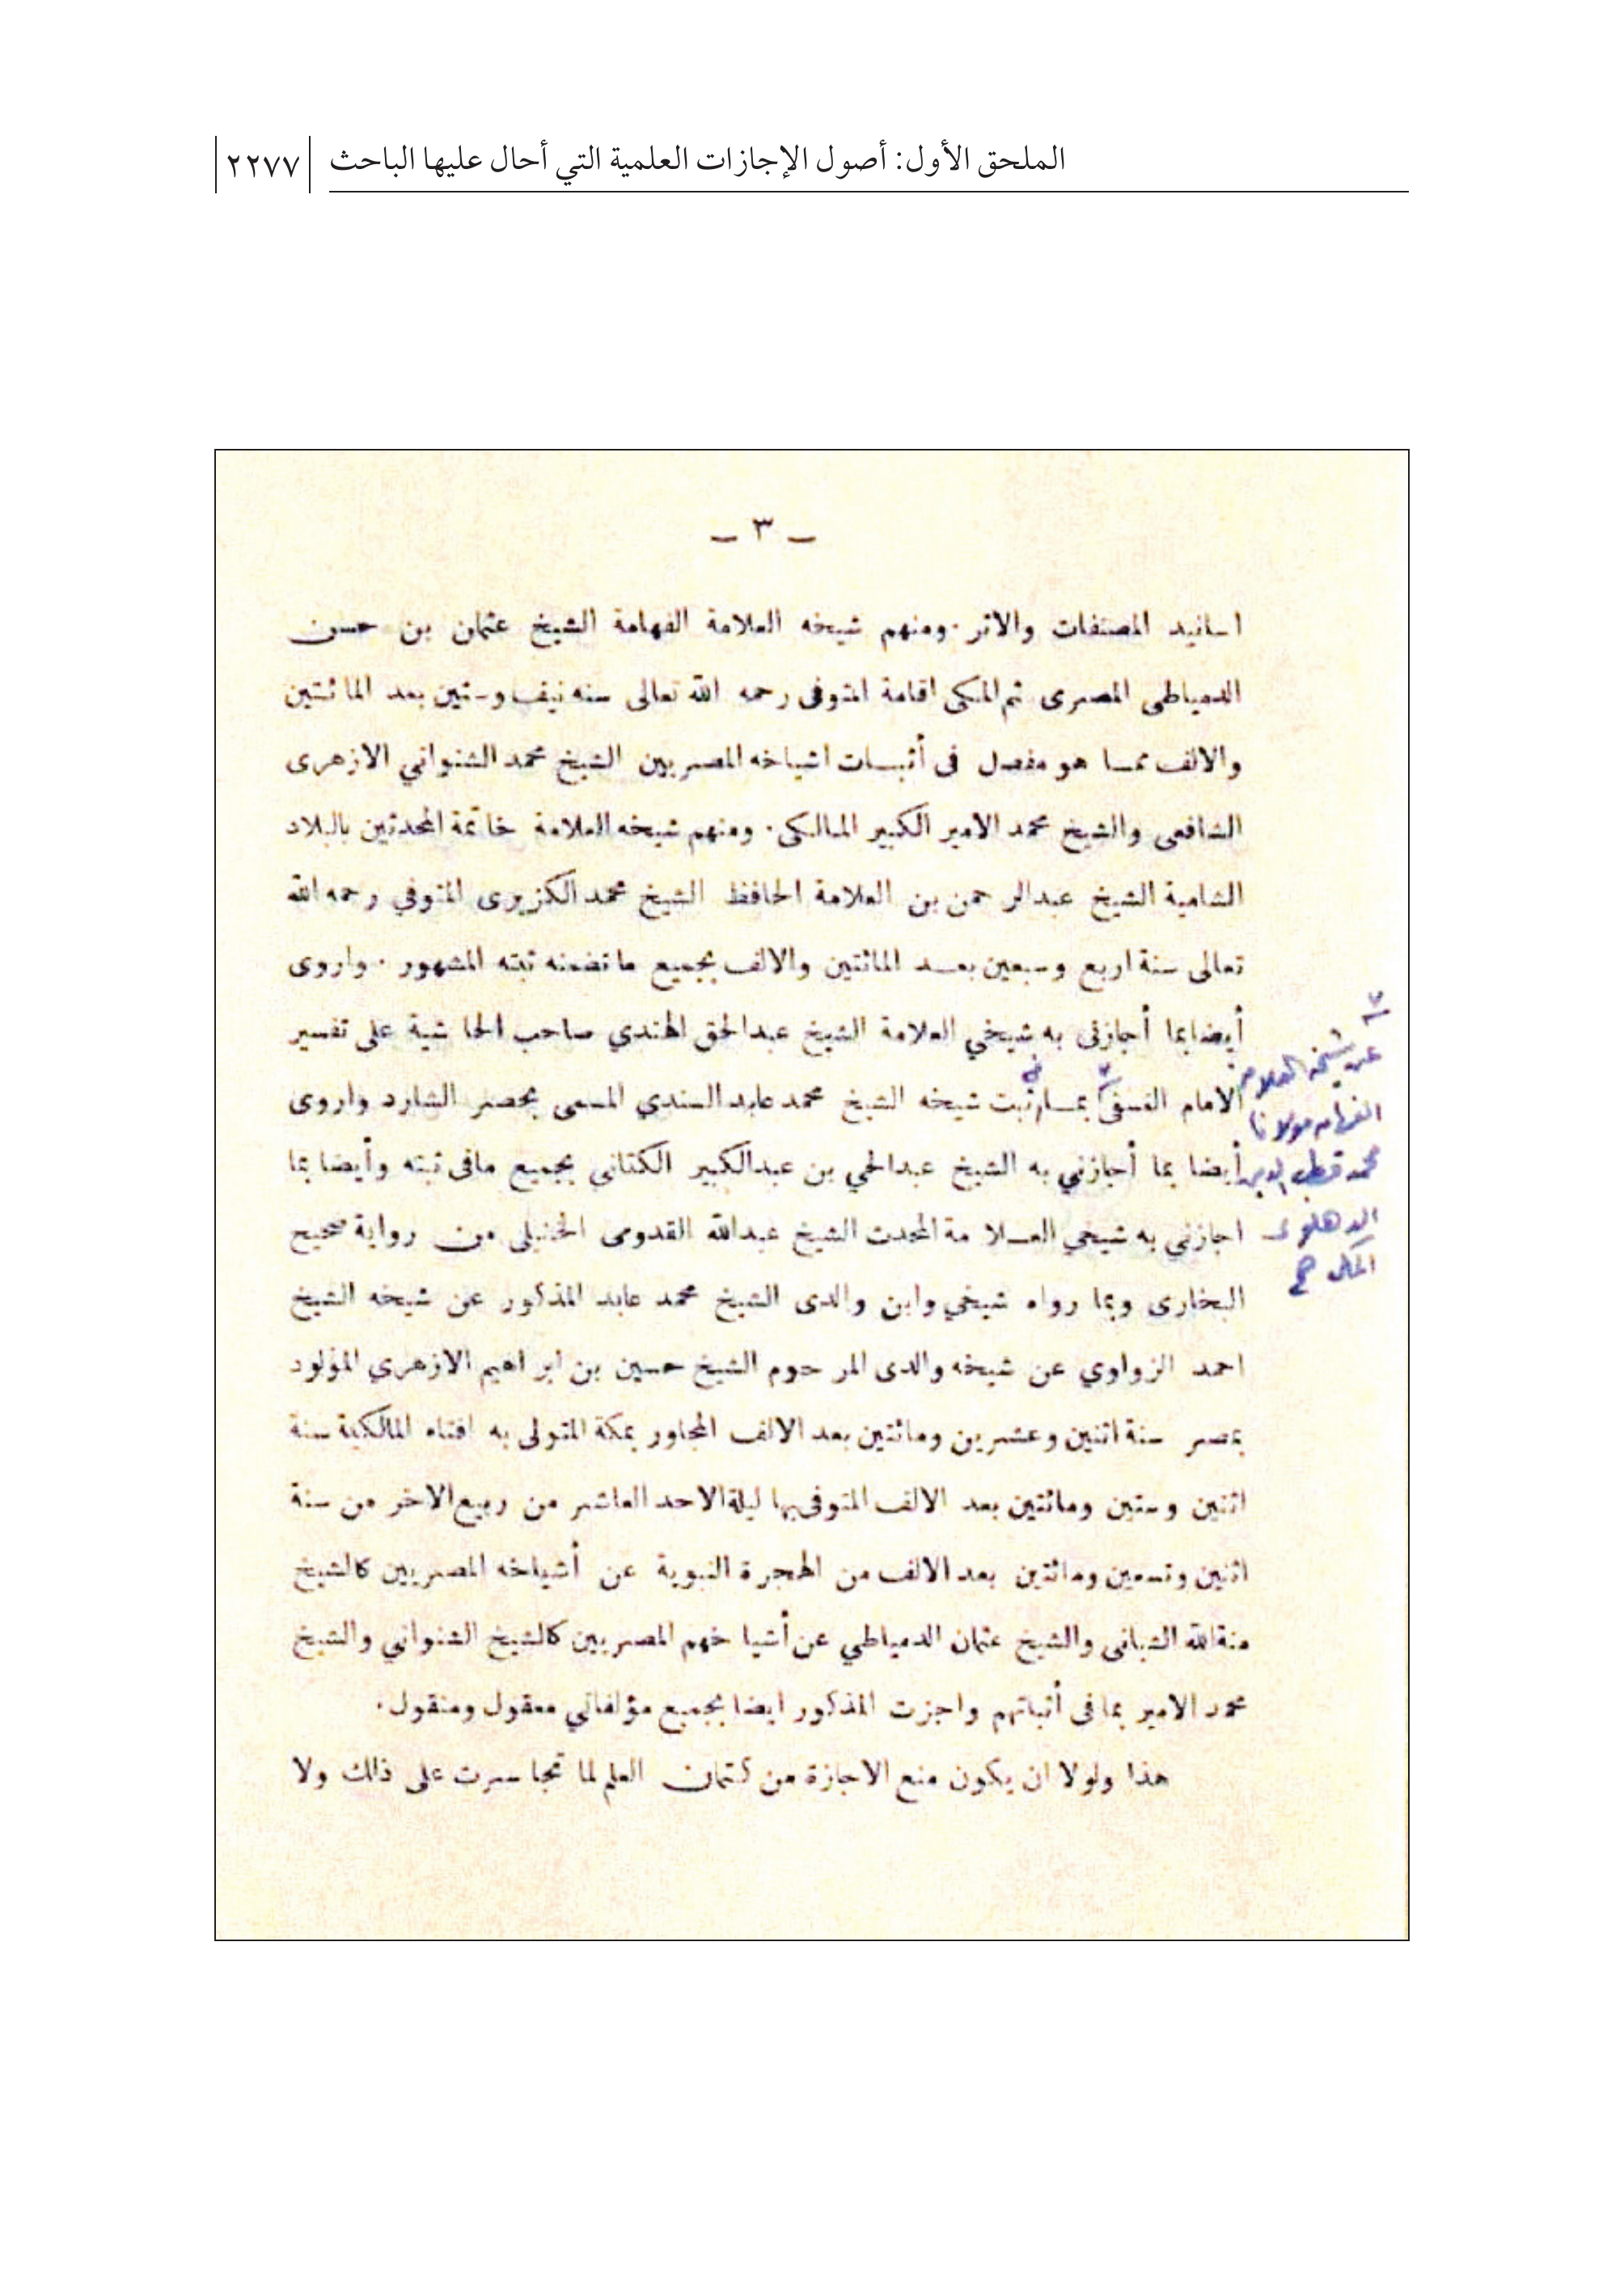 الملحق الأول: أصول الإجازات العلمية التي أحال عليها الباحث ٢٢٧٧
ـ ٣ ـ
اسانيد المصنفات والاثر. ومنهم شيخه العلامة الفهامة الشيخ عثمان بن حسن
الدمياطى المصرى ثم المكى اقامة المتوفى رحمه الله تعالى سنه نيف وستين بعد المائتين
والالف مما هو مفصل فى أثبات اشياخه المصريين الشيخ محمد الشنواني الازهرى
الشافعى والشيخ محمد الامير الكبير المالكى. ومنهم شيخه العلامة خاتمة المحدثين بالبلاد
الشامية الشيخ عبدالرحمن بن العلامة الحافظ الشيخ محمد الكزبرى المتوفي رحمه الله
تعالى سنة اربع وسبعين بعد المائتين والالف بجميع ماتضمنه ثبته المشهور. واروى
أيضا بما أجازنى به شيخي العلامة الشيخ عبدالحق الهندي صاحب الحاشية على تفسير
الامام النسفى بما فى ثبت شيخه الشيخ محمد عابد السندي المسمى بحصر الشارد واروى
أيضا بما أجازني به الشيخ عبدالحي بن عبدالكبير الكتاني بجميع مافى ثبته وأيضا بما
اجازني به شيخي العلامة المحدث الشيخ عبدالله القدومى الحنبلى من رواية صحيح
البخارى وبما رواه شيخي وابن والدى الشيخ محمد عابد المذكور عن شيخه الشيخ
احمد الزواوي عن شيخه والدى المرحوم الشيخ حسين بن ابراهيم الازهري المولود
بمصر سنة اثنين وعشرين ومائتين بعد الالف المجاور بمكة المتولى به افتاء المالكية سنة
اثنين وستين ومائتين بعد الالف المتوفى بها ليلة الاحد العاشر من ربيع الاخر من سنة
اثنين وتسعين ومائتين بعد الالف من الهجرة النبوية عن أشياخه المصريين كالشيخ
منة الله الشبانى والشيخ عثمان الدمياطي عن أشياخهم المصريين كالشيخ الشنواني والشيخ
محمد الامير بما فى أثباتهم واجزت المذكور ايضا بجميع مؤلفاتي معقول ومنقول.
هذا ولولا ان يكون منع الاجازة من كتمان العلم لما تجاسرت على ذلك ولا
عن شيخه العلامة
الفهامه مولانا
محمد قطب الدين
الدهلوى
المكى صح